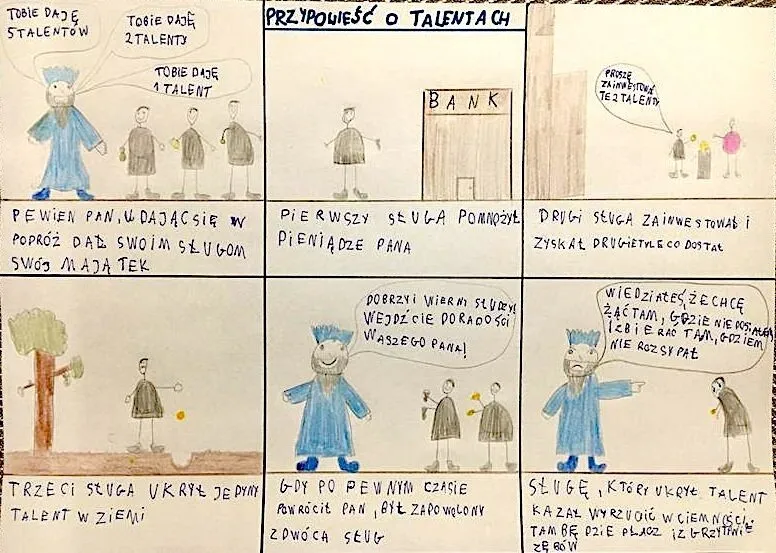 PRZYPOWIEŚĆ O TALENTACH
TOBIE DAJĘ
5 TALENTÓW
TOBIE DAJĘ
2 TALENTY
TOBIE DAJĘ
1 TALENT
PEWIEN PAN, UDAJĄC SIĘ W
PODRÓŻ DAŁ SWOIM SŁUGOM
SWÓJ MAJĄTEK
BANK
PIERWSZY SŁUGA POMNOŻYŁ
PIENIĄDZE PANA
PROSZĘ
ZAINWESTOWAĆ
TE 2 TALENTY
DRUGI SŁUGA ZAINWESTOWAŁ I
ZYSKAŁ DRUGIE TYLE CO DOSTAŁ
TRZECI SŁUGA UKRYŁ JEDYNY
TALENT W ZIEMI
DOBRZY I WIERNI SŁUDZY!
WEJDŹCIE DO RADOŚCI
WASZEGO PANA!
GDY PO PEWNYM CZASIE
POWRÓCIŁ PAN, BYŁ ZADOWOLONY
Z DWÓCH SŁUG
WIEDZIAŁEŚ, ŻE CHCĘ
ŻĄĆ TAM, GDZIE NIE POSIAŁEM
I ZBIERAĆ TAM, GDZIEM
NIE ROZSYPAŁ
SŁUGĘ, KTÓRY UKRYŁ TALENT
KAZAŁ WYRZUCIĆ W CIEMNOŚCI.
TAM BĘDZIE PŁACZ I ZGRZYTANIE
ZĘBÓW